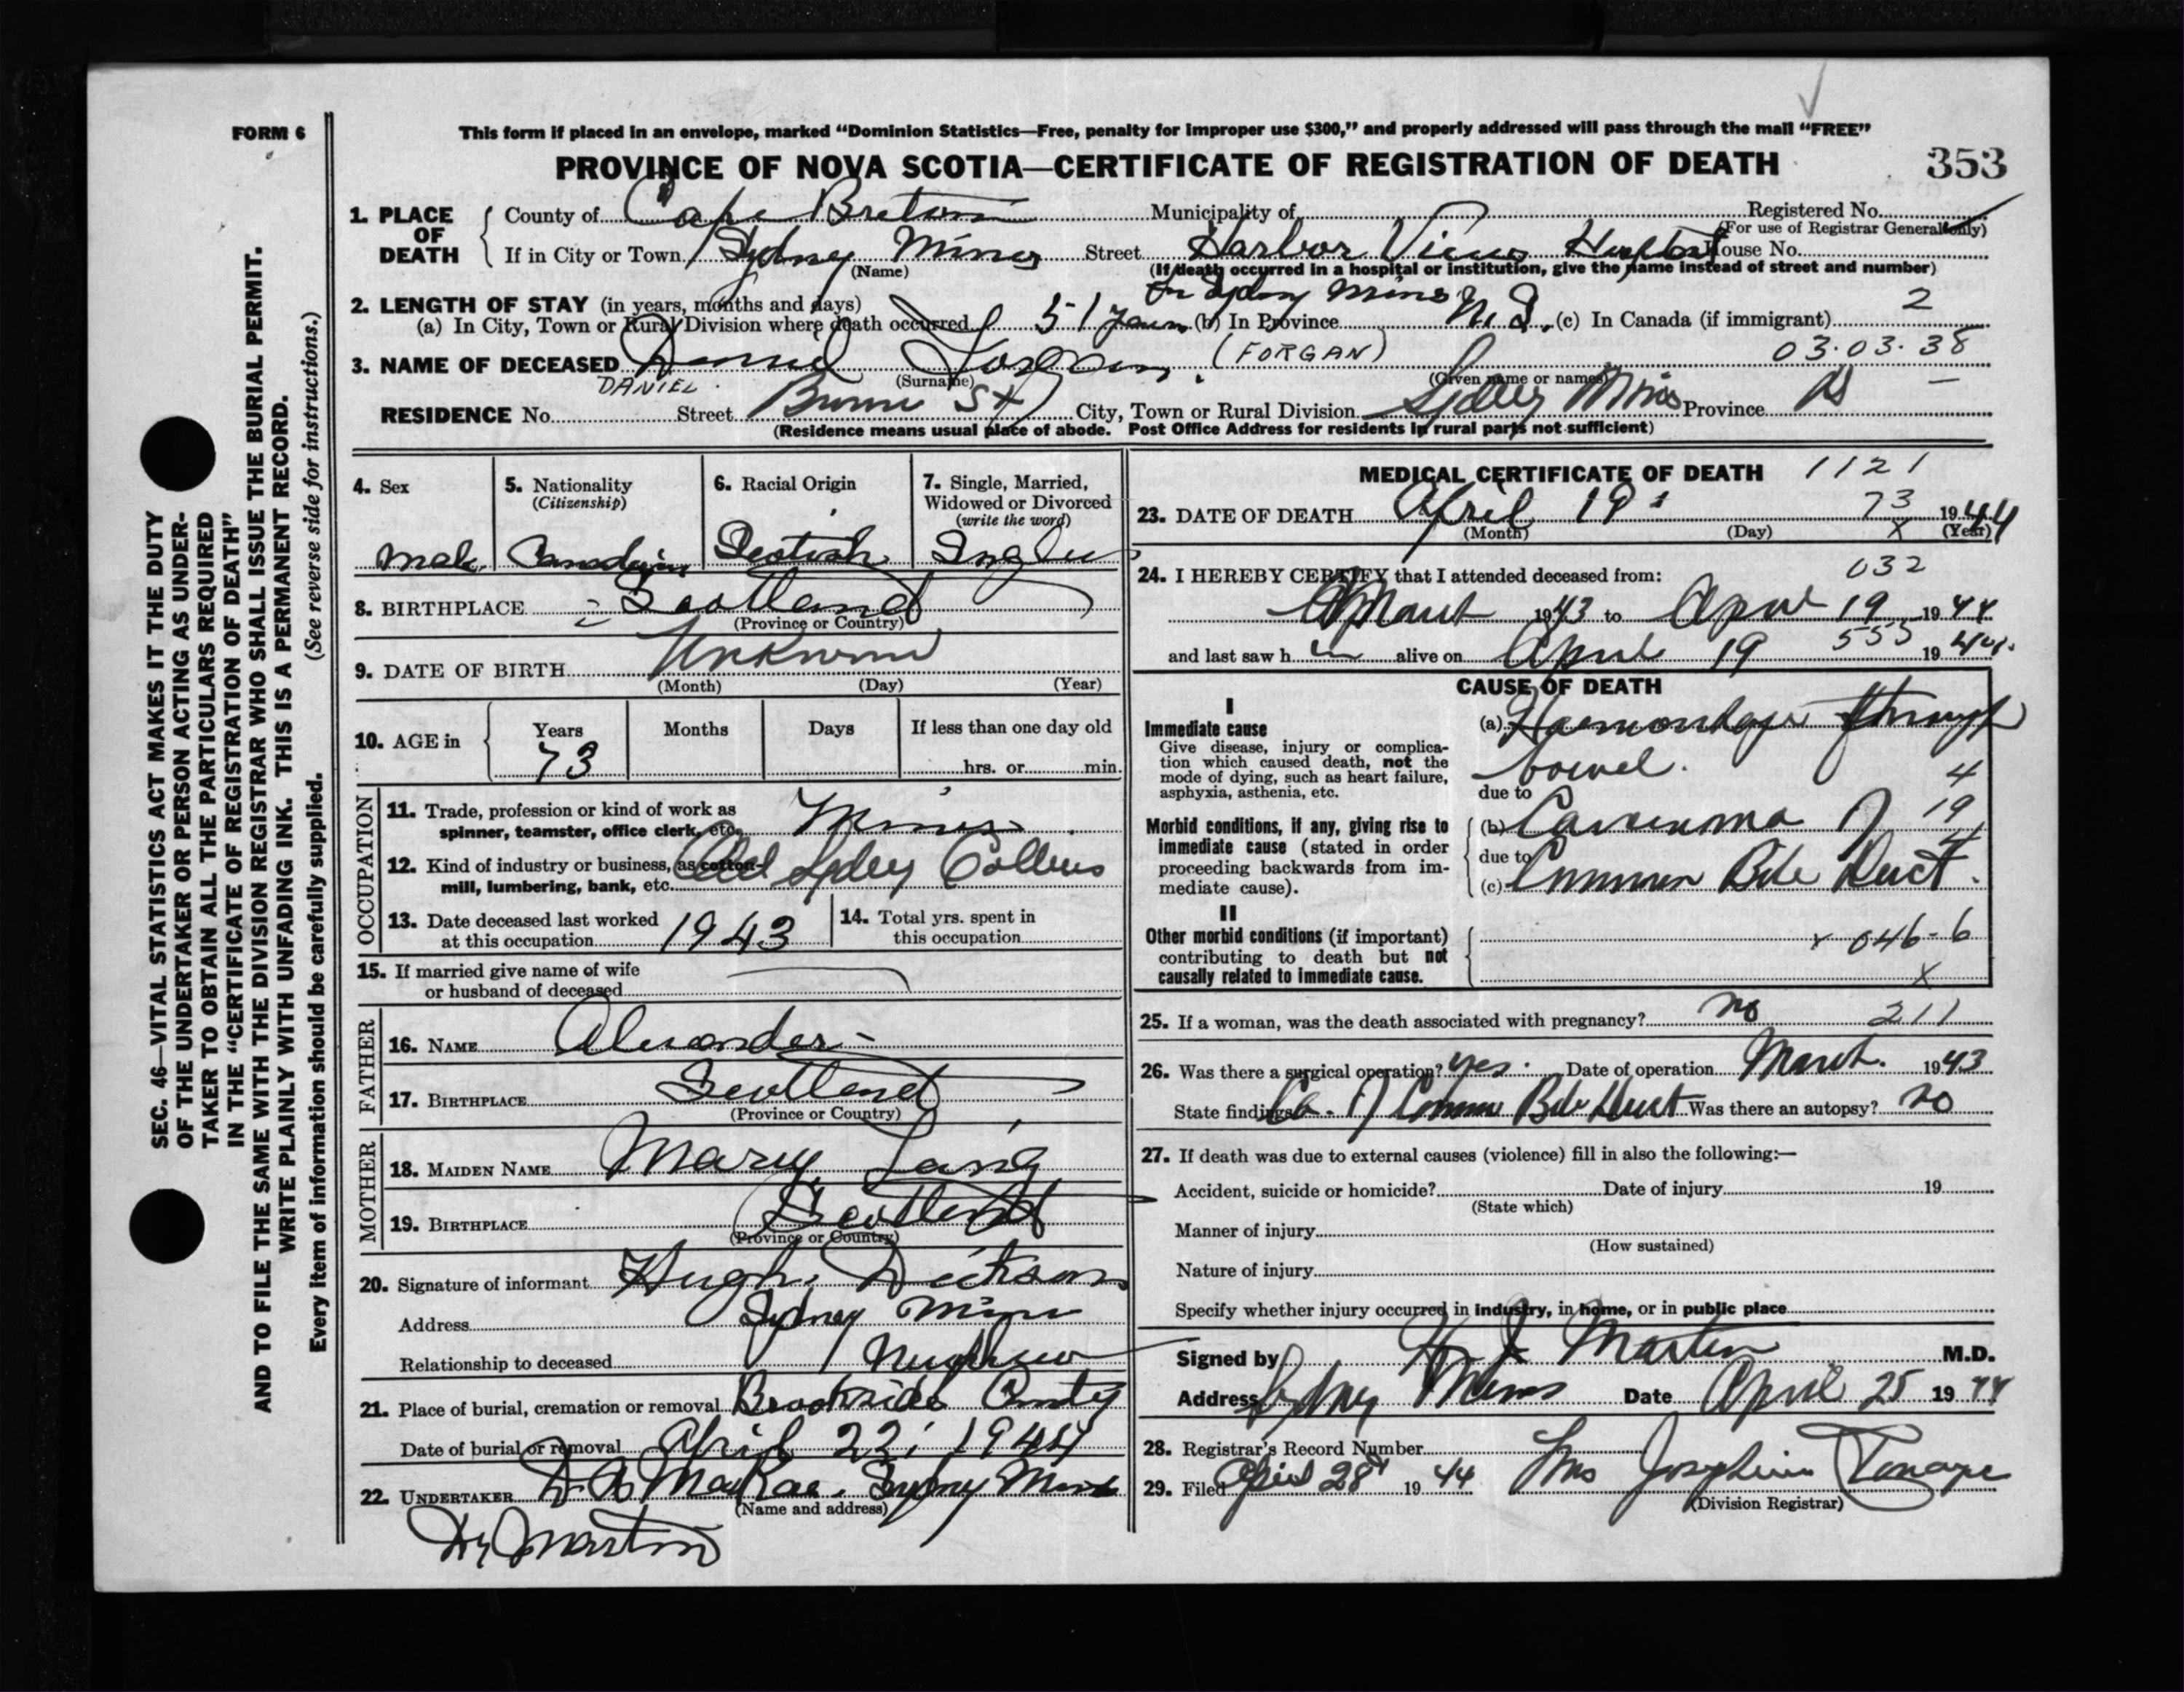 FORM 6
This form if placed in an envelope, marked "Dominion Statistics—Free, penalty for improper use $300," and properly addressed will pass through the mail "FREE"
PROVINCE OF NOVA SCOTIA—CERTIFICATE OF REGISTRATION OF DEATH 353
1. PLACE OF DEATH
County of Cape Breton Municipality of Registered No.
(For use of Registrar General only)
If in City or Town Sydney Mines Street Harbor View Hospital House No.
(Name) (If death occurred in a hospital or institution, give the name instead of street and number)
2. LENGTH OF STAY (in years, months and days) In Sydney Mines
(a) In City, Town or Rural Division where death occurred 51 years (b) In Province N.S. (c) In Canada (if immigrant) 2
3. NAME OF DECEASED Daniel Forgan (FORGAN) 03.03.38
DANIEL (Surname) (Given name or names)
RESIDENCE No. Street St City, Town or Rural Division Sydney Mines Province NS
(Residence means usual place of abode. Post Office Address for residents in rural parts not sufficient)
4. Sex Male
5. Nationality (Citizenship) Canadian
6. Racial Origin Scotish
7. Single, Married, Widowed or Divorced (write the word) Single
8. BIRTHPLACE Scotland
(Province or Country)
9. DATE OF BIRTH Unknown
(Month) (Day) (Year)
10. AGE in Years 73 Months Days If less than one day old
hrs. or min.
OCCUPATION
11. Trade, profession or kind of work as spinner, teamster, office clerk, etc. Miner
12. Kind of industry or business, as cotton-mill, lumbering, bank, etc. Old Sydney Colleries
13. Date deceased last worked at this occupation 1943
14. Total yrs. spent in this occupation
15. If married give name of wife or husband of deceased
FATHER
16. NAME Alexander
17. BIRTHPLACE Scotland
(Province or Country)
MOTHER
18. MAIDEN NAME Mary Laing
19. BIRTHPLACE Scotland
(Province or Country)
20. Signature of informant Hugh Dickson
Address Sydney Mines
Relationship to deceased Nephew
21. Place of burial, cremation or removal Brookside Cemty
Date of burial or removal April 22, 1944
22. UNDERTAKER D. A. MacRae. Sydney Mines
(Name and address)
Dr Martin
MEDICAL CERTIFICATE OF DEATH 1121
23. DATE OF DEATH April 19 73 1944
(Month) (Day) X (Year)
24. I HEREBY CERTIFY that I attended deceased from: 032
March 1943 to April 19 1944
and last saw h im alive on April 19 555 1944.
CAUSE OF DEATH
I
Immediate cause
Give disease, injury or complication which caused death, not the mode of dying, such as heart failure, asphyxia, asthenia, etc.
(a) Haemorrhage through
bowel. 4
due to
Morbid conditions, if any, giving rise to immediate cause (stated in order proceeding backwards from immediate cause).
(b) Carcinoma of 19
due to
(c) Common Bile Duct.
II
Other morbid conditions (if important) contributing to death but not causally related to immediate cause.
x 046-6
X
25. If a woman, was the death associated with pregnancy? no 211
26. Was there a surgical operation? yes. Date of operation March. 1943
State findings Ca. of Common Bile Duct Was there an autopsy? no
27. If death was due to external causes (violence) fill in also the following:—
Accident, suicide or homicide? Date of injury 19
(State which)
Manner of injury
(How sustained)
Nature of injury
Specify whether injury occurred in industry, in home, or in public place
Signed by Martin M.D.
Address Sydney Mines Date April 25 1944
28. Registrar's Record Number
29. Filed April 28 1944 Mrs Josephine
(Division Registrar)
SEC. 46—VITAL STATISTICS ACT MAKES IT THE DUTY
OF THE UNDERTAKER OR PERSON ACTING AS UNDER-
TAKER TO OBTAIN ALL THE PARTICULARS REQUIRED
IN THE "CERTIFICATE OF REGISTRATION OF DEATH"
AND TO FILE THE SAME WITH THE DIVISION REGISTRAR WHO SHALL ISSUE THE BURIAL PERMIT.
WRITE PLAINLY WITH UNFADING INK. THIS IS A PERMANENT RECORD.
Every item of information should be carefully supplied. (See reverse side for instructions.)